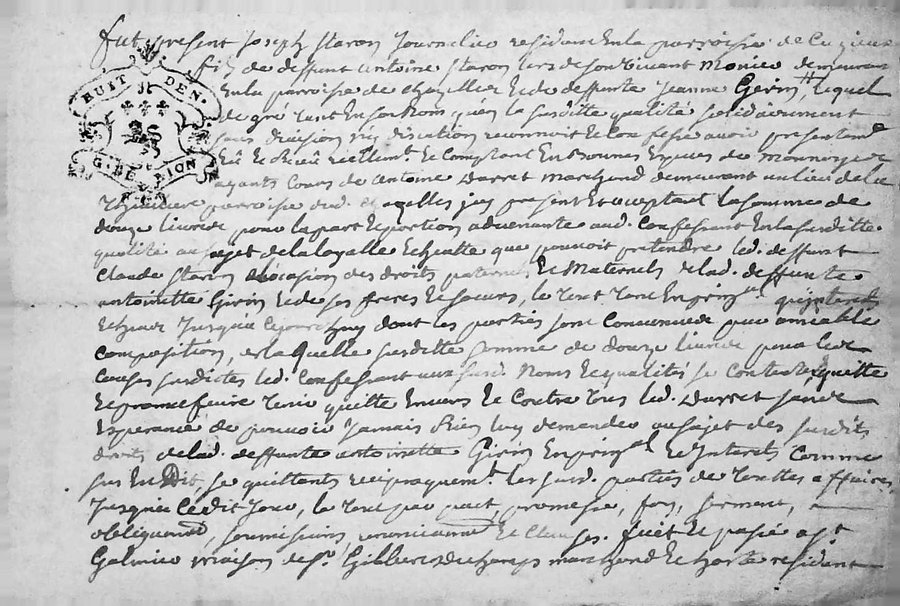 fut present Joseph Staron Journalier residant En la parroisse de Cuzieux
filz de deffunt antoine Staron lors de son vivant Monier demeurant
HUIT DEN.
En la parroisse de chazelles Et de deffunte Jeanne Girin, lequel
de gré tant En son Nom qu'en la susditte qualité solidairement
sans division ny discution reconnoit Et confesse avoir presentemt
G. DE RION
Eû Et Receû reellemt. Et Comptant En bonnes Especes de Monnoyes
ayants Cours de antoine Darret marchand demeurant au lieu de la
parroisse dud. chazelles icy present Et acceptant la somme de
douze livres pour la part Et portion advenante aud. Confessant En la susditte
qualité au sujet de la Et que pouvoit pretendre led. deffunt
Claude Staron a locasion des droits paternels Et Maternels de lad. deffunte
antoinette Girin Et de ses freres Et soeurs, le tout tant En prin.al qu'interets
Jusqu'a ce jourdhuy dont les parties sont Convenues par amiable
Composition, de la quelle susditte somme de douze livres pour les
Causes susdictes led. Confessant aux susd. Noms Et qualités se Contente Et quitte
Et promet faire tenir quitte Envers Et Contre tous led. Darret sans
Esperance de pouvoir Jamais Rien luy demander au sujet des susdits
droits de lad. deffunte antoinette Girin En prin.al Et Interets Comme
sus En Dit se quittants reciproquemt. les susd. parties de toutes affaires
Jusqu'a Cedit Jour, le tout par pact, promesse, foy, serment,
obligation, soumissions, renonciations Et Clauses. fait Et passé a St.
Galmier maison de Sr. Gilbert marchand Et hoste residant